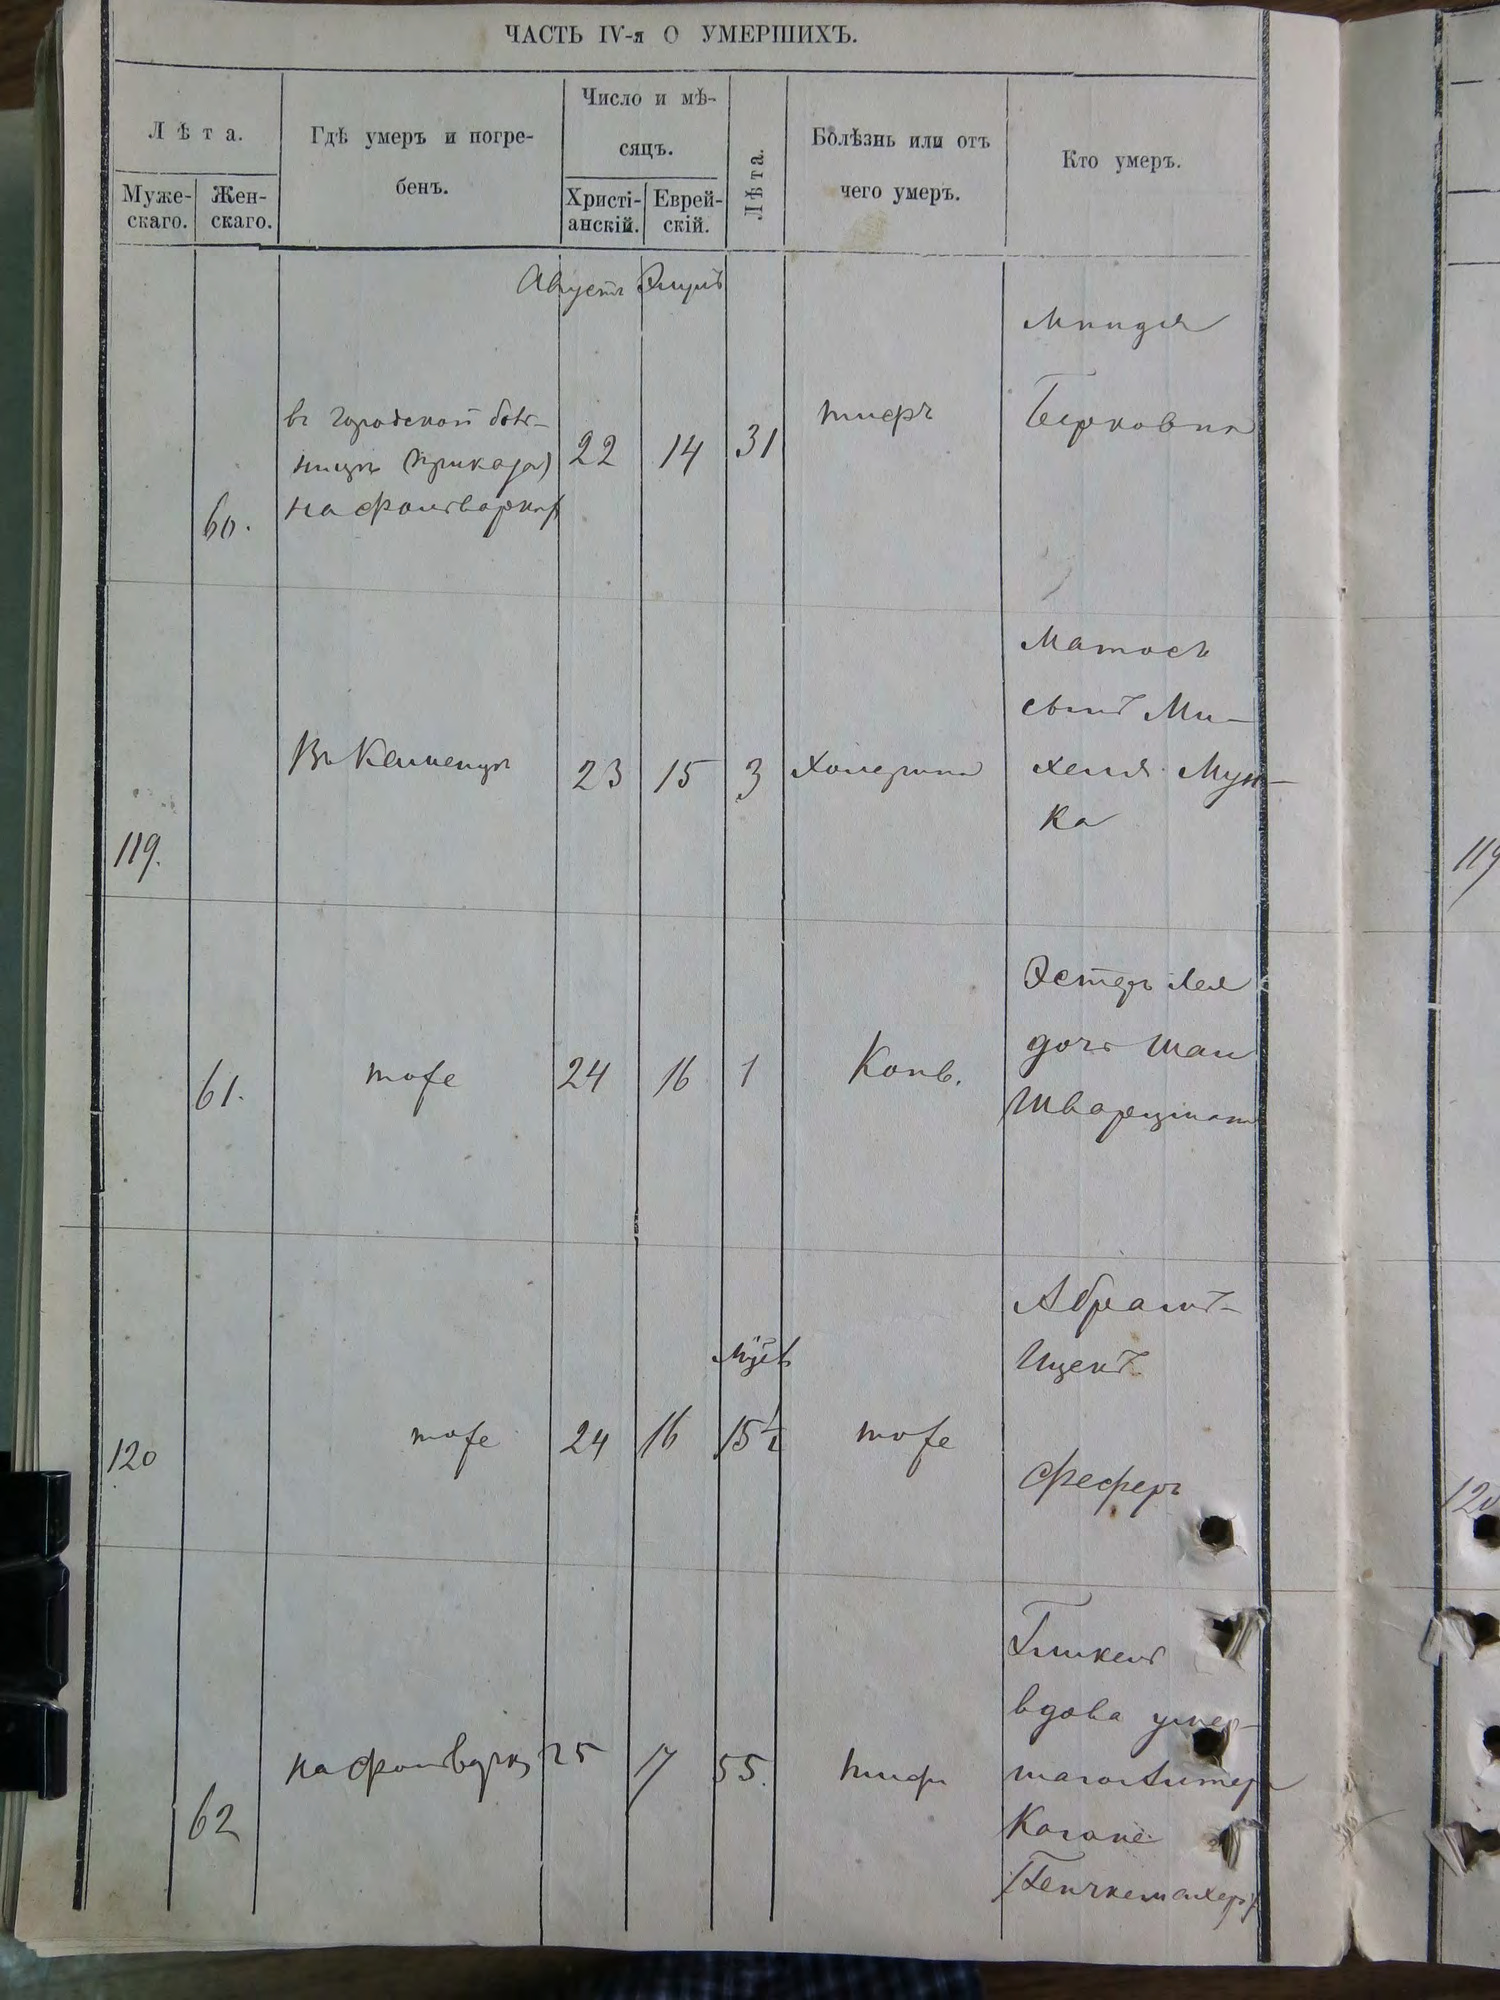 ЧАСТЬ IV-я О УМЕРШИХЪ.
Лѣта.
Муже-
скаго.
Жен-
скаго.
Гдѣ умеръ и погре-
бенъ.
Число и мѣ-
сяцъ.
Христі-
анскій.
Еврей-
скій.
Лѣта.
Болѣзнь или отъ
чего умеръ.
Кто умеръ.
Августъ Элулъ
60.
въ городской боль-
ницѣ (приказа)
на фольваркѣ
22
14
31
тифъ
Миндля
Берковна
119.
Въ Каменцѣ
23
15
3
холерина
Матось
сынъ Ми-
хеля Мун-
ка
119
61.
тоже
24
16
1
Конв.
Эстеръ Лея
дочь Шаи
Шварцман
120
тоже
24
16
15½
тоже
Абрамъ-
Ицекъ
Феферъ
120
62
на фольварку
25
17
55.
тифъ
вдова умер-
шаго